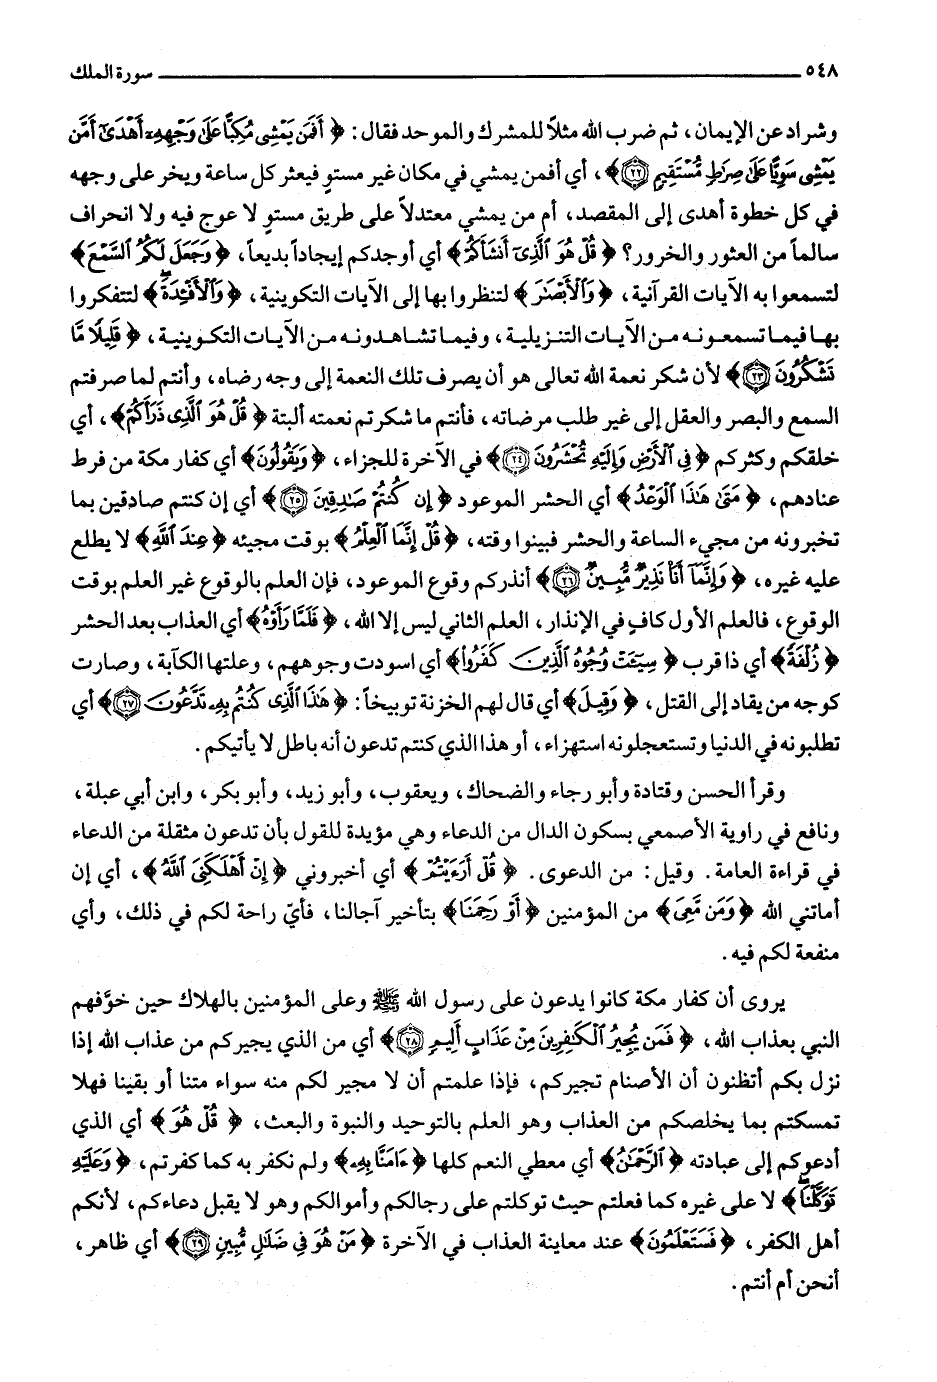 ٥٤٨ سورة الملك
وشراد عن الإيمان، ثم ضرب الله مثلاً للمشرك والموحد فقال: ﴿ أَفَمَن يَمْشِى مُكِبًّا عَلَىٰ وَجْهِهِۦٓ أَهْدَىٰٓ أَمَّن
يَمْشِى سَوِيًّا عَلَىٰ صِرَٰطٍ مُّسْتَقِيمٍ ﴿٢٢﴾﴾، أي أفمن يمشي في مكان غير مستوٍ فيعثر كل ساعة ويخر على وجهه
في كل خطوة أهدى إلى المقصد، أم من يمشي معتدلاً على طريق مستوٍ لا عوج فيه ولا انحراف
سالماً من العثور والخرور؟ ﴿ قُلْ هُوَ ٱلَّذِىٓ أَنشَأَكُمْ﴾ أي أوجدكم إيجاداً بديعاً، ﴿ وَجَعَلَ لَكُمُ ٱلسَّمْعَ﴾
لتسمعوا به الآيات القرآنية، ﴿ وَٱلْأَبْصَٰرَ﴾ لتنظروا بها إلى الآيات التكوينية، ﴿ وَٱلْأَفْـِٔدَةَ﴾ لتتفكروا
بها فيما تسمعونه من الآيات التنزيلية، وفيما تشاهدونه من الآيات التكوينية، ﴿ قَلِيلًا مَّا
تَشْكُرُونَ ﴿٢٣﴾﴾ لأن شكر نعمة الله تعالى هو أن يصرف تلك النعمة إلى وجه رضاه، وأنتم لما صرفتم
السمع والبصر والعقل إلى غير طلب مرضاته، فأنتم ما شكرتم نعمته ألبتة ﴿ قُلْ هُوَ ٱلَّذِى ذَرَأَكُمْ﴾، أي
خلقكم وكثركم ﴿ فِى ٱلْأَرْضِ وَإِلَيْهِ تُحْشَرُونَ ﴿٢٤﴾﴾ في الآخرة للجزاء، ﴿ وَيَقُولُونَ﴾ أي كفار مكة من فرط
عنادهم، ﴿ مَتَىٰ هَٰذَا ٱلْوَعْدُ﴾ أي الحشر الموعود ﴿ إِن كُنتُمْ صَٰدِقِينَ ﴿٢٥﴾﴾ أي إن كنتم صادقين بما
تخبرونه من مجيء الساعة والحشر فبينوا وقته، ﴿ قُلْ إِنَّمَا ٱلْعِلْمُ﴾ بوقت مجيئه ﴿ عِندَ ٱللَّهِ﴾ لا يطلع
عليه غيره، ﴿ وَإِنَّمَآ أَنَا۠ نَذِيرٌ مُّبِينٌ ﴿٢٦﴾﴾ أنذركم وقوع الموعود، فإن العلم بالوقوع غير العلم بوقت
الوقوع، فالعلم الأول كافٍ في الإنذار، العلم الثاني ليس إلا الله، ﴿ فَلَمَّا رَأَوْهُ﴾ أي العذاب بعد الحشر
﴿ زُلْفَةً﴾ أي ذا قرب ﴿ سِيٓـَٔتْ وُجُوهُ ٱلَّذِينَ كَفَرُوا۟﴾ أي اسودت وجوههم، وعلتها الكآبة، وصارت
كوجه من يقاد إلى القتل، ﴿ وَقِيلَ﴾ أي قال لهم الخزنة توبيخاً: ﴿ هَٰذَا ٱلَّذِى كُنتُم بِهِۦ تَدَّعُونَ ﴿٢٧﴾﴾ أي
تطلبونه في الدنيا وتستعجلونه استهزاء، أو هذا الذي كنتم تدعون أنه باطل لا يأتيكم.
وقرأ الحسن وقتادة وأبو رجاء والضحاك، ويعقوب، وأبو زيد، وأبو بكر، وابن أبي عبلة،
ونافع في راوية الأصمعي بسكون الدال من الدعاء وهي مؤيدة للقول بأن تدعون مثقلة من الدعاء
في قراءة العامة. وقيل: من الدعوى. ﴿ قُلْ أَرَءَيْتُمْ﴾ أي أخبروني ﴿ إِنْ أَهْلَكَنِىَ ٱللَّهُ﴾، أي إن
أماتني الله ﴿ وَمَن مَّعِىَ﴾ من المؤمنين ﴿ أَوْ رَحِمَنَا﴾ بتأخير آجالنا، فأيّ راحة لكم في ذلك، وأي
منفعة لكم فيه.
يروى أن كفار مكة كانوا يدعون على رسول الله ﷺ وعلى المؤمنين بالهلاك حين خوَّفهم
النبي بعذاب الله، ﴿ فَمَن يُجِيرُ ٱلْكَٰفِرِينَ مِنْ عَذَابٍ أَلِيمٍ ﴿٢٨﴾﴾ أي من الذي يجيركم من عذاب الله إذا
نزل بكم أتظنون أن الأصنام تجيركم، فإذا علمتم أن لا مجير لكم منه سواء متنا أو بقينا فهلا
تمسكتم بما يخلصكم من العذاب وهو العلم بالتوحيد والنبوة والبعث، ﴿ قُلْ هُوَ﴾ أي الذي
أدعوكم إلى عبادته ﴿ ٱلرَّحْمَٰنُ﴾ أي معطي النعم كلها ﴿ ءَامَنَّا بِهِۦ﴾ ولم نكفر به كما كفرتم، ﴿ وَعَلَيْهِ
تَوَكَّلْنَا﴾ لا على غيره كما فعلتم حيث توكلتم على رجالكم وأموالكم وهو لا يقبل دعاءكم، لأنكم
أهل الكفر، ﴿ فَسَتَعْلَمُونَ﴾ عند معاينة العذاب في الآخرة ﴿ مَنْ هُوَ فِى ضَلَٰلٍ مُّبِينٍ ﴿٢٩﴾﴾ أي ظاهر،
أنحن أم أنتم.